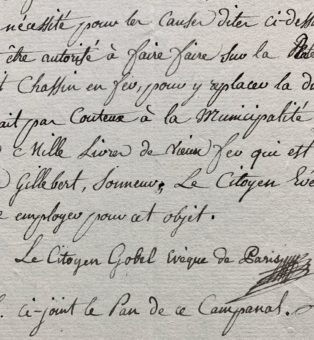 nécessité pour les causes dites ci-dess
être autorisé à faire faire sur la Plate
t Chassin en fer, pour y replacer la d
ait par Couteux à la Municipalité
c Mille Livres de vieux fer qui est
Gillebert, Sonneur, Le Citoyen Evê
e employer pour cet objet.
Le Citoyen Gobel Evêque de Paris
ci-joint le Pan de ce Campanal.